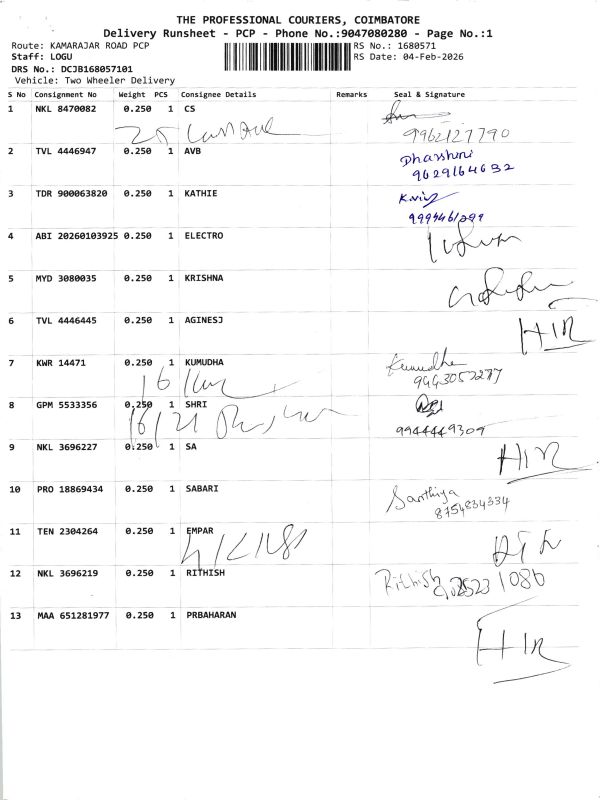 THE PROFESSIONAL COURIERS, COIMBATORE
Delivery Runsheet - PCP - Phone No.:9047080280 - Page No.:1
Route: KAMARAJAR ROAD PCP RS No.: 1680571
Staff: LOGU RS Date: 04-Feb-2026
DRS No.: DCJB168057101
Vehicle: Two Wheeler Delivery
S No Consignment No Weight PCS Consignee Details Remarks Seal & Signature
1 NKL 8470082 0.250 1 CS
9962127790
2 TVL 4446947 0.250 1 AVB Dharshini
9629164632
3 TDR 900063820 0.250 1 KATHIE
4 ABI 20260103925 0.250 1 ELECTRO
5 MYD 3080035 0.250 1 KRISHNA
6 TVL 4446445 0.250 1 AGINESJ
7 KWR 14471 0.250 1 KUMUDHA Kumudha
9443057277
8 GPM 5533356 0.250 1 SHRI
9944449309
9 NKL 3696227 0.250 1 SA
10 PRO 18869434 0.250 1 SABARI Santhiya
8754834334
11 TEN 2304264 0.250 1 EMPAR
12 NKL 3696219 0.250 1 RITHISH Rithish
13 MAA 651281977 0.250 1 PRBAHARAN